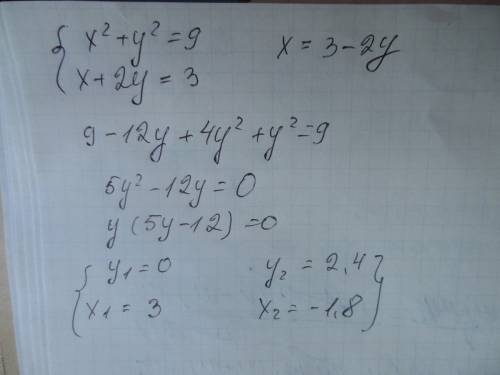 { x² + y² = 9    x = 3 - 2y
x + 2y = 3
9 - 12y + 4y² + y² = 9
5y² - 12y = 0
y (5y - 12) = 0
{ y₁ = 0    y₂ = 2,4 }
x₁ = 3    x₂ = -1,8